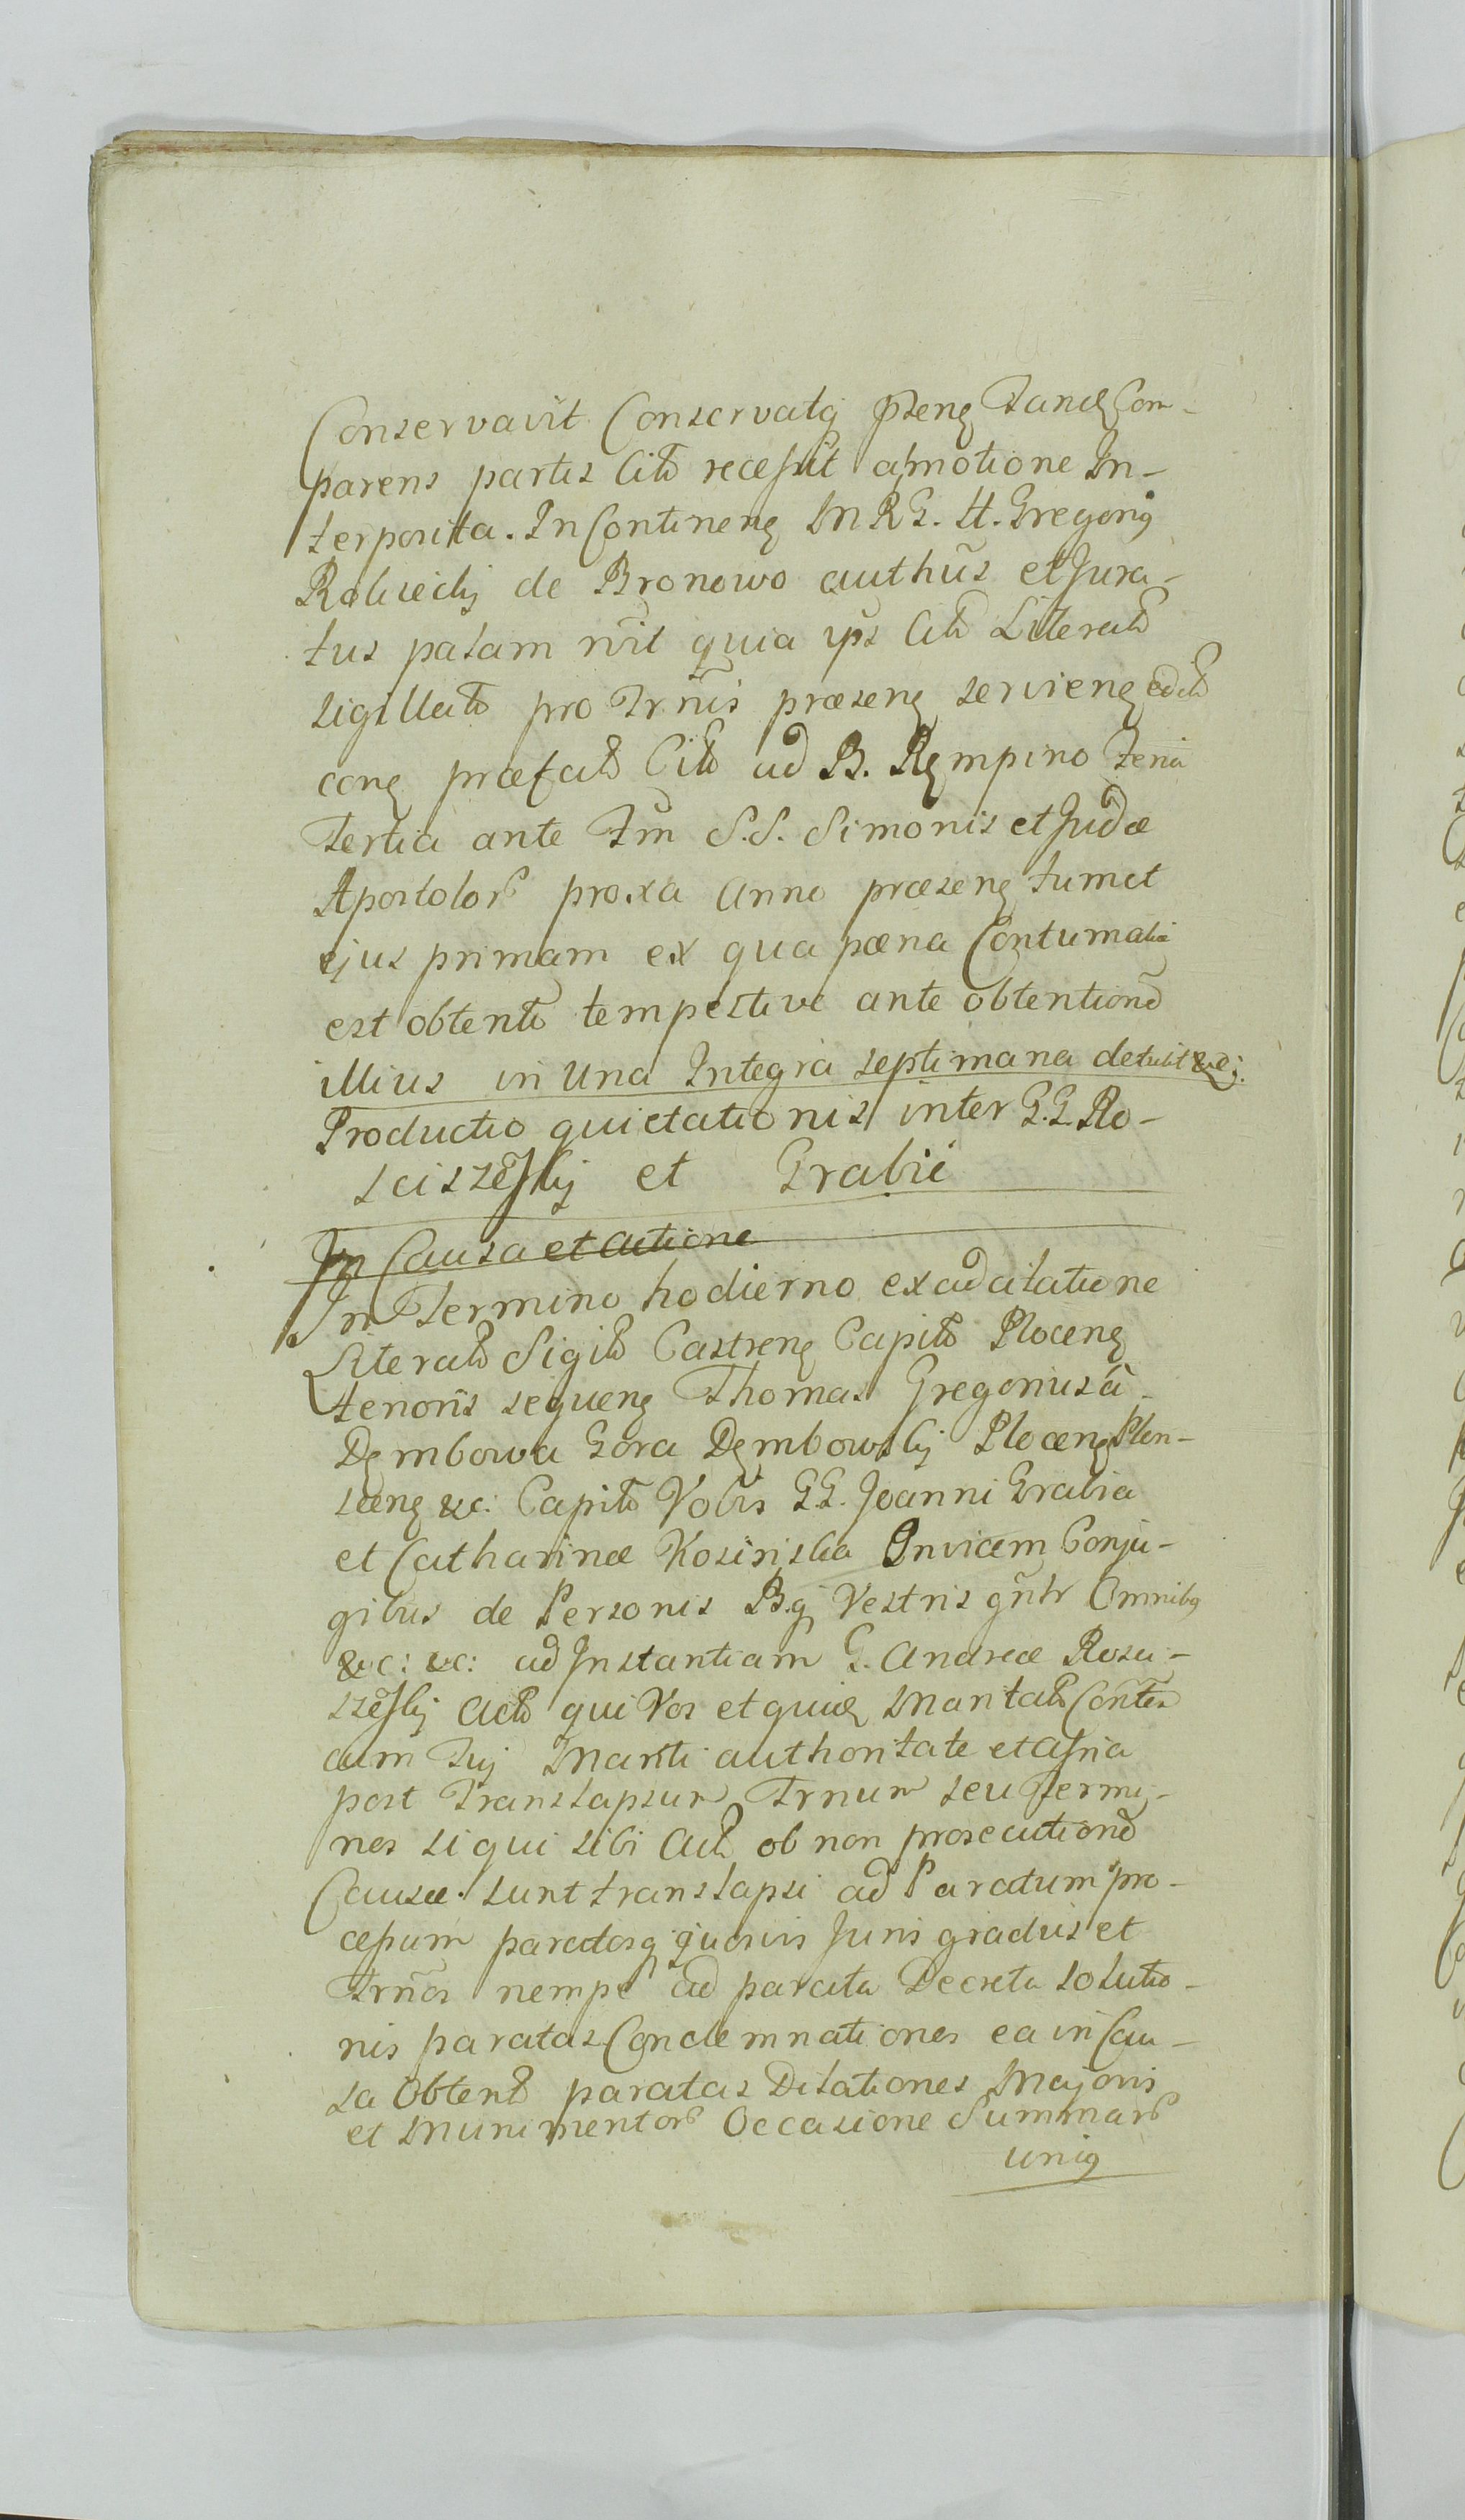 Conservavit Conservatq pñseng Tandq Com-
parens partis Citō recessit amotione In-
terposita. In Continenq M R G. H. Gregoriq
de Bronowo authũs et Jura-
tus palam rñvit quia ips Citō Literatō
sigillatō pro Trñis præseng servieng
cong præfatō Citō ad B. Rempino Feria
Tertia ante Fm S.S. Simonis et Judæ
Apostolorō proxa Anno præseng tumet
ejus primam ex qua pœna Contumatia
est obtentō tempestive ante obtentionō
illius in Una Integra septimana detulit &c:
Productio quietationis inter G.G. Ro-
sciszēskij et Grabie
In Causa et actione
In Termino hodierno ex adcitatione
Literatō Sigilō Castreng Capitō Ploceng
tenoris sequeng Thomas Gregorius à
Dęmbowa Gora Dęmbowskij Ploceng Plon-
sceng &c: Capitō Vobis G.G. Joanni Grabia
et Catharinæ Kosinska Invicem Conju-
gibus de Personis B.q Vestris gñtr Omnibq
&c: &c: ad Instantiam G. Andreæ Rosci-
szēskij Actō qui Vos et quidq Maritatō Contra
cum Tuj Mariti authoritate et assña
post Translapsum Trnum seu Termi-
nos si qui sibi Actō ob non prosecutionō
Causæ sunt translapsi ad Paratum pro-
cessum paratosq quosvis Juris gradus et
Trños nempe ad parata Decreta solutio-
nis paratas Condemnationes ea in Cau-
sa Obtentō paratas Dilationes Majoris
et Munimentorō Occasione Summarō
uniq